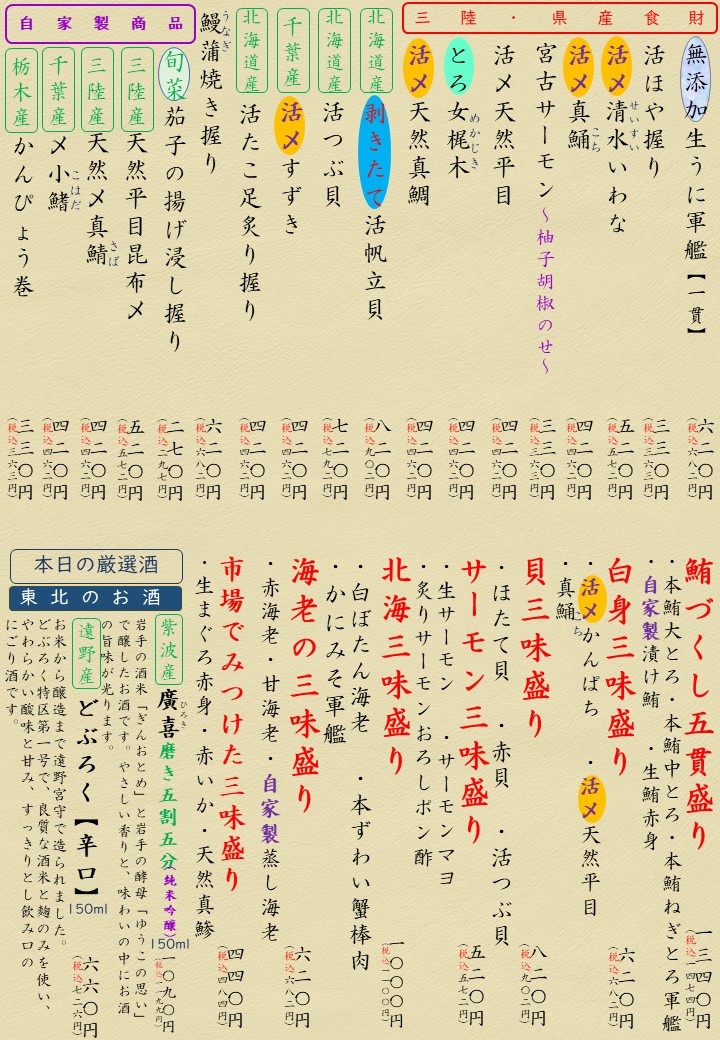 三陸・県産食財
無添加生うに軍艦【一貫】
六二〇円
(税込六八二円)
活ほや握り
三三〇円
(税込三六三円)
活〆清水いわな
せいすい
五二〇円
(税込五七二円)
活〆真鯒
こち
四二〇円
(税込四六二円)
宮古サーモン～柚子胡椒のせ～
三三〇円
(税込三六三円)
活〆天然平目
四二〇円
(税込四六二円)
とろ女梶木
めかじき
四二〇円
(税込四六二円)
活〆天然真鯛
四二〇円
(税込四六二円)
北海道産
剥きたて活帆立貝
八二〇円
(税込九〇二円)
北海道産
活つぶ貝
七二〇円
(税込七九二円)
千葉産
活〆すずき
四二〇円
(税込四六二円)
北海道産
活たこ足炙り握り
四二〇円
(税込四六二円)
鰻蒲焼き握り
うなぎ
六二〇円
(税込六八二円)
自家製商品
旬菜茄子の揚げ浸し握り
二七〇円
(税込二九七円)
三陸産
天然平目昆布〆
五二〇円
(税込五七二円)
三陸産
天然〆真鯖
さば
四二〇円
(税込四六二円)
千葉産
〆小鰭
こはだ
四二〇円
(税込四六二円)
栃木産
かんぴょう巻
三三〇円
(税込三六三円)
鮪づくし五貫盛り
一三四〇円
(税込一四七四円)
・本鮪大とろ・本鮪中とろ・本鮪ねぎとろ軍艦
・自家製漬け鮪　・生鮪赤身
白身三味盛り
六二〇円
(税込六八二円)
・活〆かんぱち　・活〆天然平目
・真鯒
こち
貝三味盛り
八二〇円
(税込九〇二円)
・ほたて貝　・赤貝　・活つぶ貝
サーモン三味盛り
五二〇円
(税込五七二円)
・生サーモン　・サーモンマヨ
・炙りサーモンおろしポン酢
北海三味盛り
一〇〇〇円
(税込一一〇〇円)
・白ぼたん海老　・本ずわい蟹棒肉
・かにみそ軍艦
海老の三味盛り
六二〇円
(税込六八二円)
・赤海老・甘海老・自家製蒸し海老
市場でみつけた三味盛り
四四〇円
(税込四八四円)
・生まぐろ赤身・赤いか・天然真鯵
本日の厳選酒
東北のお酒
紫波産
廣喜磨き五割五分(純米吟醸)
ひろき
150ml
一〇九〇円
(税込一一九九円)
岩手の酒米「ぎんおとめ」と岩手の酵母「ゆうこの思い」
で醸したお酒です。やさしい香りと、味わいの中にお酒
の旨味が光ります。
遠野産
どぶろく【辛口】
150ml
六六〇円
(税込七二六円)
お米から醸造まで遠野宮守で造られました。
どぶろく特区第一号で、良質な酒米と麹のみを使い、
やわらかい酸味と甘み、すっきりとし飲み口の
にごり酒です。